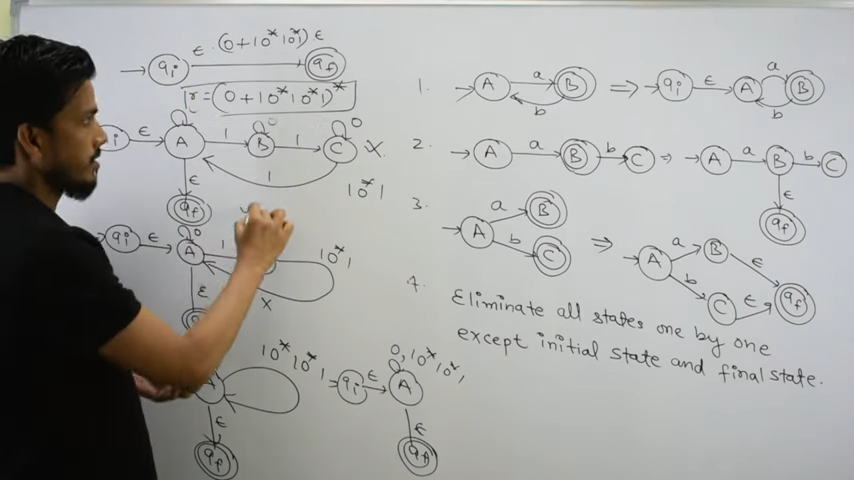 ε . (0+10*10*1)* ε
qi qf
r = (0+10*10*1)*
i ε A 1 B 0 1 C 0 X
1
ε
qf
10*1
qi ε A 0 1 10*1
ε X
10*10*1
qi ε A 0, 10*10*1
ε
qf
ε
qf
1. A a B b ⇒ qi ε A a B b
2. A a B b C ⇒ A a B b C
ε
qf
3. A a B
b C
⇒ A a B ε
b C ε qf
4. Eliminate all states one by one
except initial state and final state.